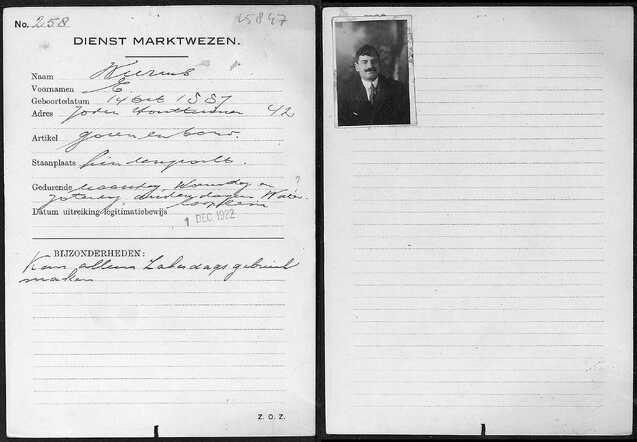 No. 258 15847
DIENST MARKTWEZEN.
Naam
Voornamen E.
Geboortedatum 14 Oct 1887
Adres Joden Houttuinen 42
Artikel garen en band.
Staanplaats
Gedurende maandag, Woensdag en
Zaterdag andere dagen Water
looplein
Datum uitreiking legitimatiebewijs 1 DEC 1922
BIJZONDERHEDEN:
Kan alleen Zaterdags gebruik
maken
Z. O. Z.